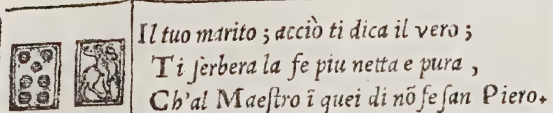 Il tuo marito ; acciò ti dica il vero ;
Ti ſerbera la fe piu netta e pura ,
Ch'al Maeſtro ĩ quei di nõ fe ſan Piero.